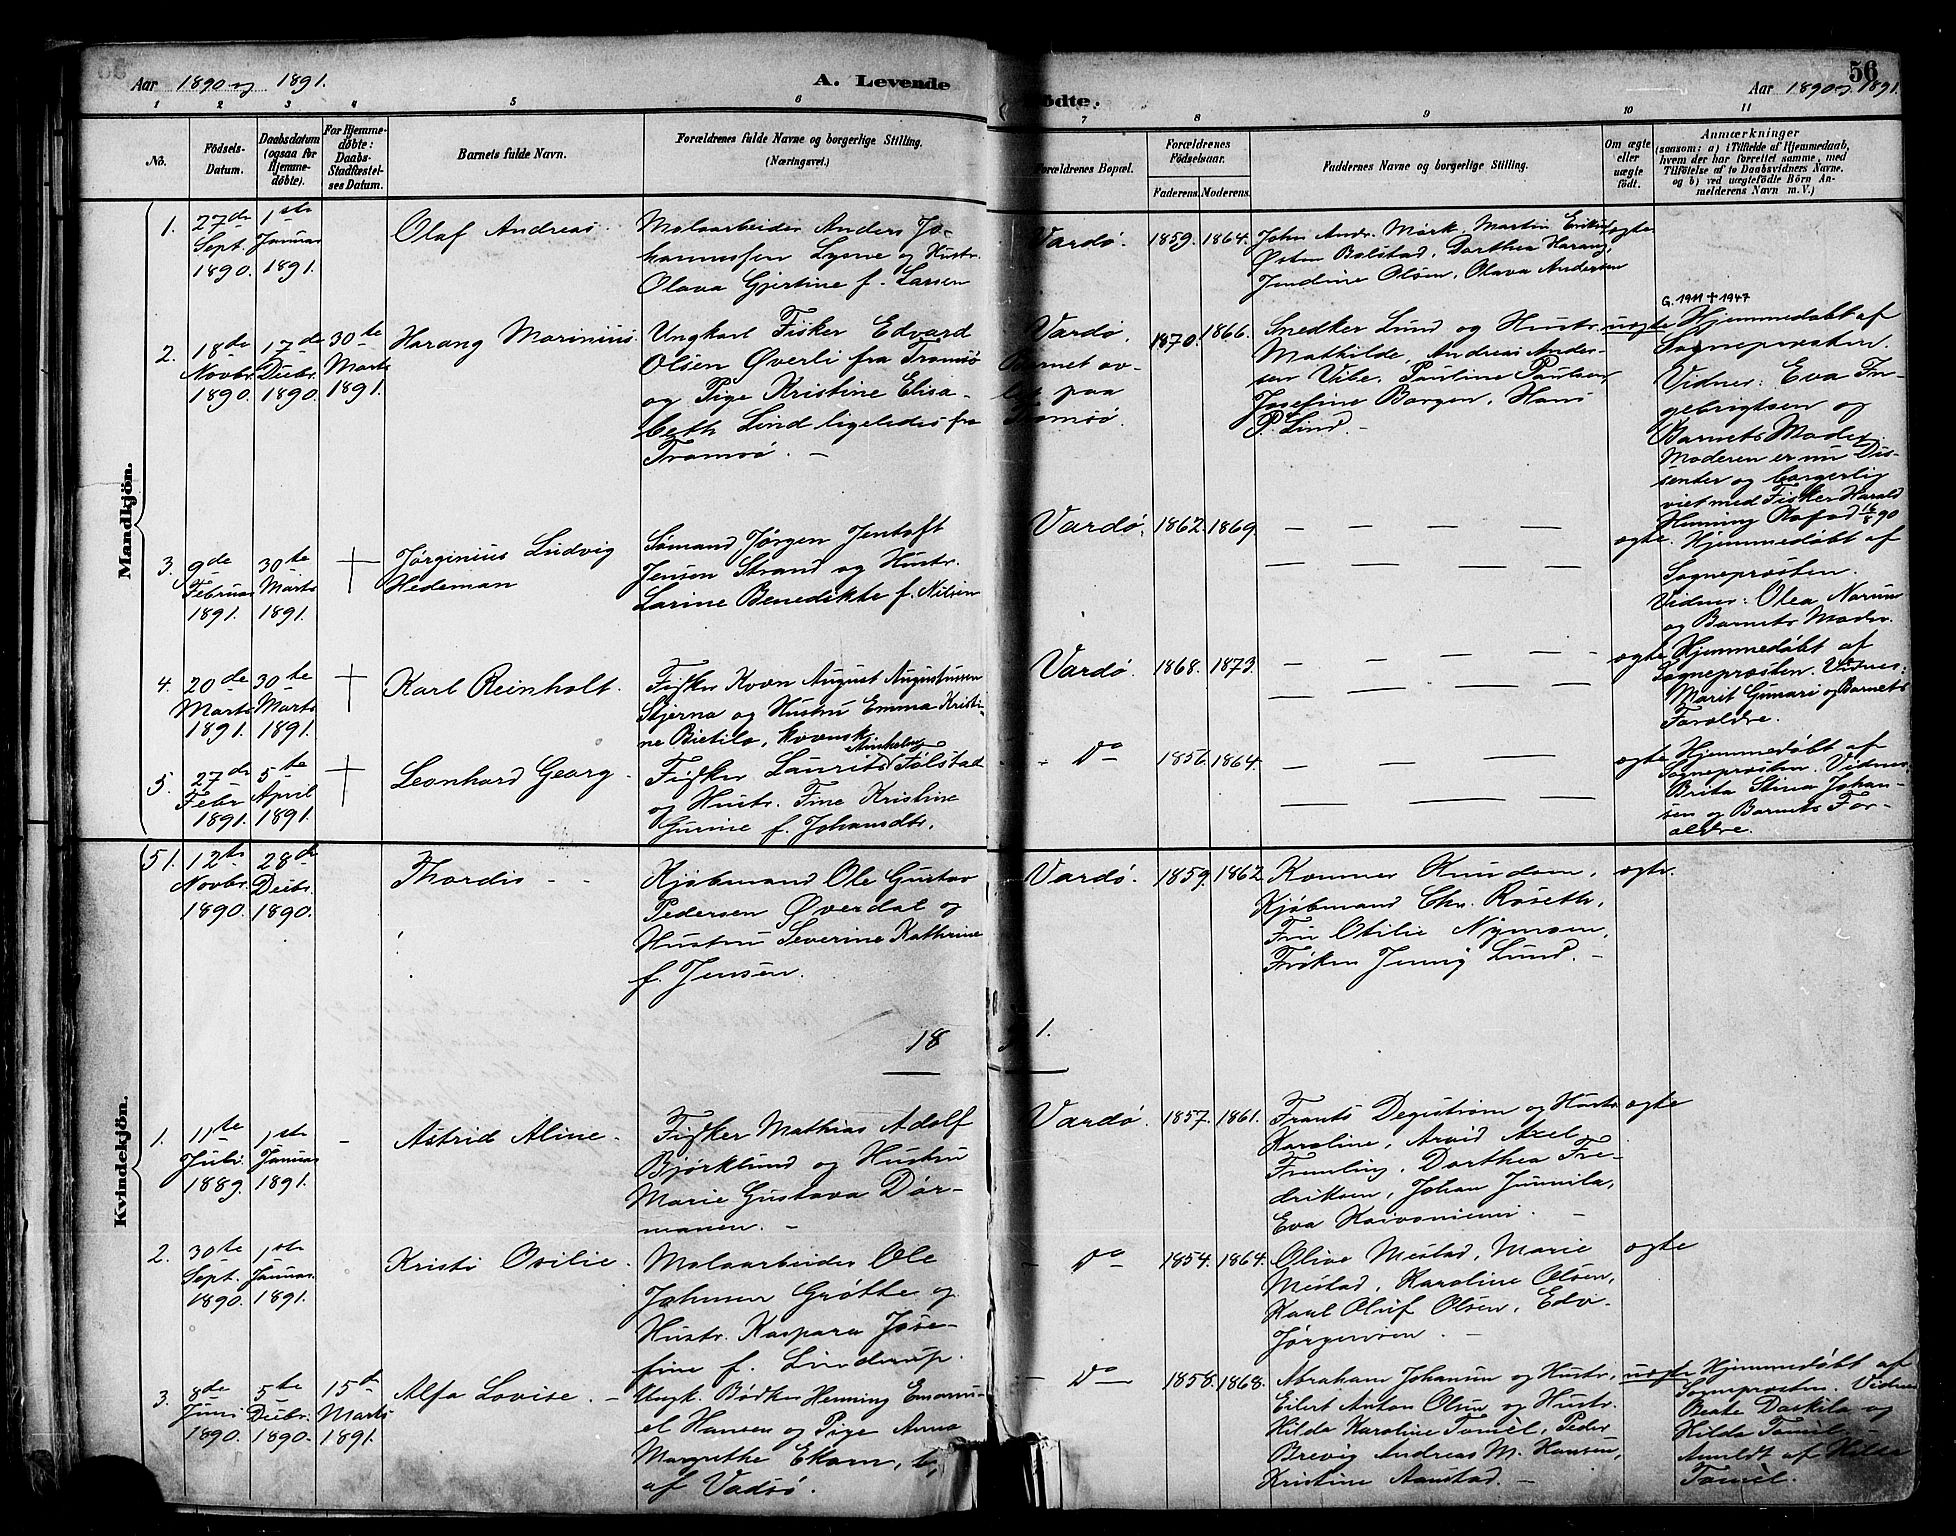 56
Aar 1890 og 1891. A. Levende
Födte. Aar 1890 og 1891.
1 2 3 4 5 6
7 8 9 10 11
No.
Födsels-
Datum.
Daabsdatum
(ogsaa for
Hjemme-
döbte).
For Hjemme-
döbte:
Daabs-
Stadfæstel-
ses Datum.
Barnets fulde Navn.
Forældrenes fulde Navne og borgerlige Stilling.
(Næringsvei.)
Forældrenes Bopæl.
Forældrenes
Födselsaar.
Faderens. Moderens.
Faddernes Navne og borgerlige Stilling.
Om ægte
eller
uægte
födt.
Anmærkninger
(saasom: a) i Tilfælde af Hjemmedaab,
hvem der har forrettet samme, med
Tilföielse af to Daabsvidners Navne.
og b) ved uægtefödte Börn An-
melderens Navn m. V.)
Mandkjön.
1.
27de
Sept.
1890.
1ste
Januar
1891.
Olaf Andreas.
Malaarbeider Anders Jo-
hannessen Lysne og Hustr.
Olava Gjertine f. Larsen
Vardø. 1859. 1864.
John Andr. Mørk, Martin Eriksen,
Østen Balstad, Dorthea Harang,
Jendine Olsen, Olava Andersen
ægte
2.
18de
Novbr.
1890.
17de
Decbr.
1890.
30te
Marts
1891.
Harang Marinius.
Ungkarl Fisker Edvard
Olsen Øverli fra Tromsø
og Pige Kristine Elisa-
beth Lind ligeledes fra
Tromsø. —
Vardø.
Barnet av-
let paa
Tromsø.
1870. 1866.
Snedker Lund og Hustr.
Mathilde, Andreas Ander-
sen Vibe, Pauline Paulsen,
Josefine Borgen, Hans
P. Lind. —
uægte
G. 1911 + 1947
Hjemmedøbt af
Sognepræsten.
Vidner: Eva In-
gebrigtsen og
Barnets Moder.
Moderen er nu Dis-
senter og borgerlig
viet med Fisker Harald
Henning Olofsd 16/8 90
3.
9de
Februar
1891.
30te
Marts
1891.
Jørginius Ludvig
Hedeman
Sømand Jørgen Jentoft
Jensen Strand og Hustr.
Larine Benedikte f. Nilsen
Vardø. 1862. 1869.
ægte.
Hjemmedøbt af
Sognepræsten.
Vidner: Olea Norum
og Barnets Moder.
4.
20de
Marts
1891.
30te
Marts
1891.
Karl Reinholt.
Fisker Kvæn August Augustussen
Stjerna og Hustru Emma Kristi-
ne Bietila, Kvensk
Vardø. 1868. 1873.
ægte
Hjemmedøbt af
Sognepræsten. Vidner:
Marit Gunari og Barnets
Forældre.
5.
27de
Febr
1891.
5te
April
1891.
Leonhard Georg.
Fisker Laurits Følstad
og Hustr. Fine Kristine
Gurine f. Johansdtr.
Do 1856. 1864.
ægte
Hjemmedøbt af
Sognepræsten. Vidner:
Brita Stina Johan-
sen og Barnets For-
ældre.
Kvindekjön.
51.
12te
Novbr.
1890.
28de
Decbr.
1890.
Thordis
Kjøbmand Ole Gustav
Pedersen Øverdal og
Hustru Severine Kathrine
f. Jensen.
Vardø. 1859. 1862
Kjøbmand Chr. Røseth,
Fru Otilie Nymoen,
Frøken Jenny Lund. —
ægte.
18 91.
1.
11te
Juli
1889.
1ste
Januar
1891.
Astrid Aline.
Fisker Mathias Adolf
Bjørklund og Hustru
Marie Gustava Dør-
manen. —
Vardø. 1857. 1861.
Frants Degerstrøm og Hustr.
Karoline, Arvid Axel
Fremling, Dorthea Fre-
driksen, Johan Junnila,
Eva Kaivoniemi. —
ægte
2.
30te
Sept.
1890.
1ste
Januar.
1891.
Kristi Ovilie.
Malaarbeider Ole
Johnsen Grøtte og
Hustr. Kaspara Jose-
fine f. Linderup.
Do 1854. 1864.
Olive Mestad, Marie
Mestad, Karoline Olsen,
Karl Oluf Olsen, Edv.
Jørgensen. —
ægte
3.
8de
Juni
1890.
5te
Decbr.
1890.
15de
Marts
1891.
Alfa Lovise. —
Ungk. Bødker Henning Emanu-
el Hansen og Pige Anna
Margrethe Ekom,
af Vadsø.
Do 1858. 1868.
Abraham Johansen og Hustr.,
Eilert Anton Olsen og Hustr.
Hilda Karoline Tomèl, Peder
Brevig Andreas M. Hansen,
Kristine Aanstad. —
uægte
Hjemmedøbt af
Sognepræsten. Vidner
Beate Daskila og
Hilda Tomèl.
Anmeldt af Hilda
Tomèl.